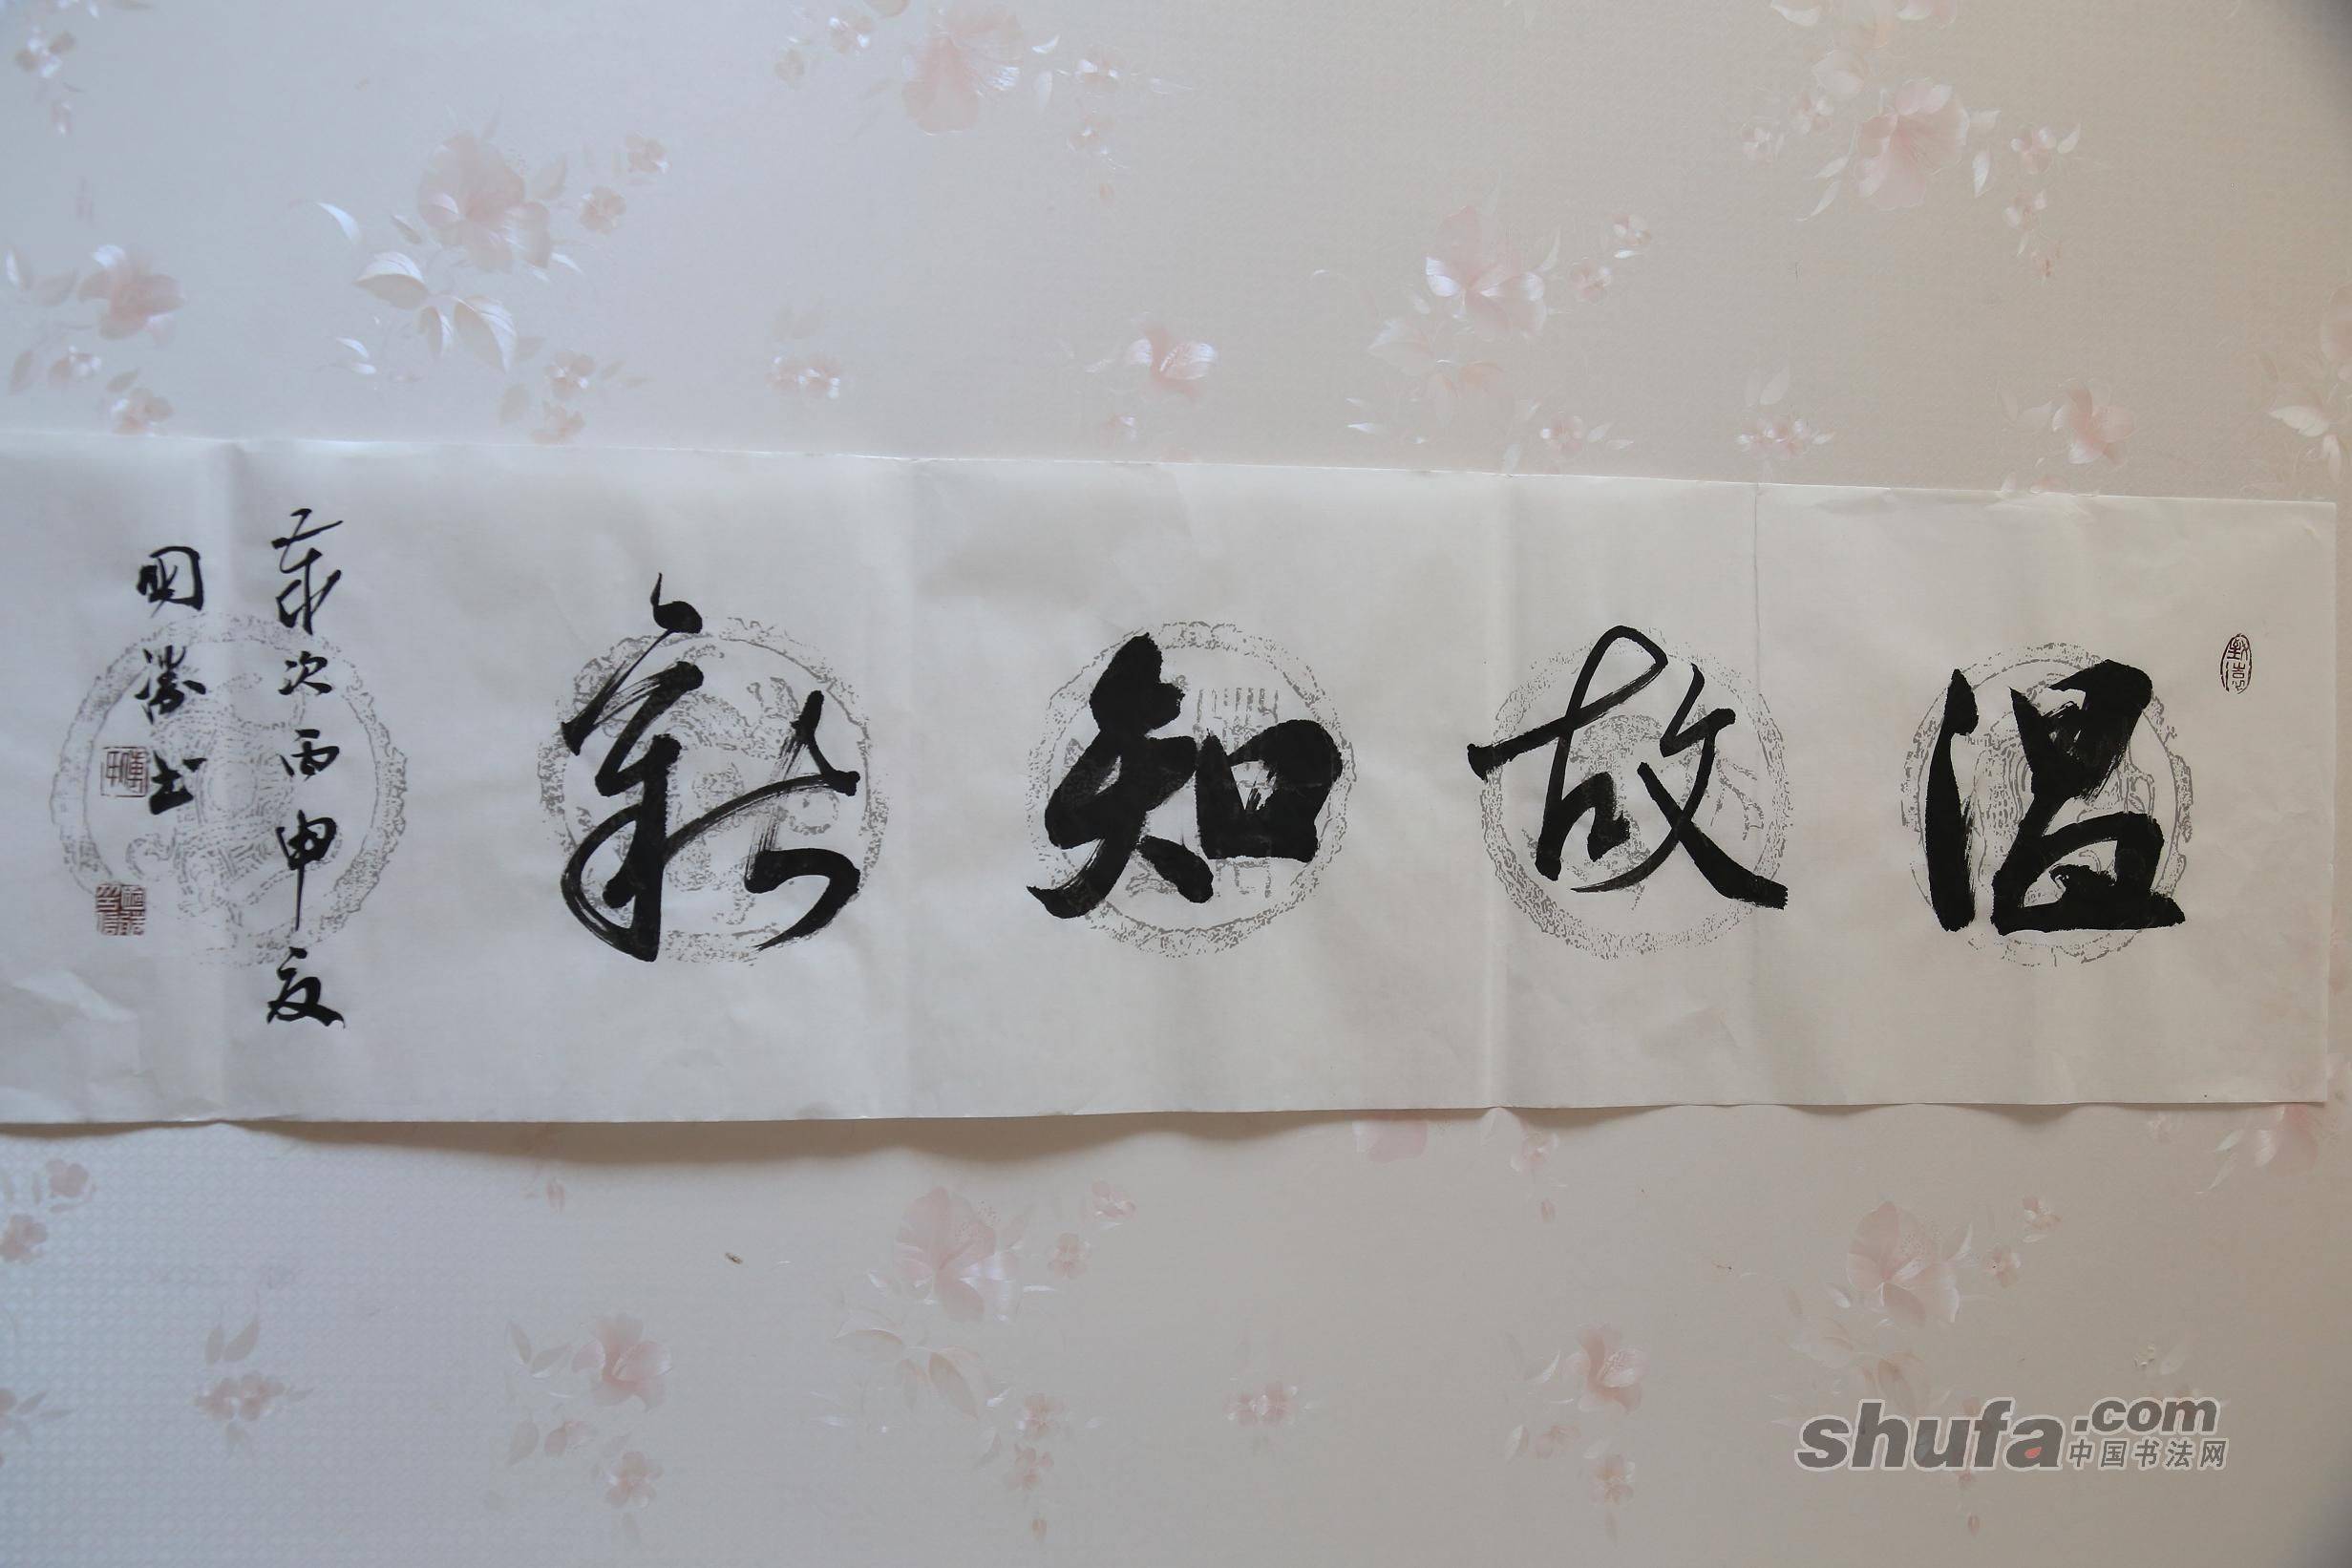 温故知新
岁次丙申夏
国胜书
shufa.com
中国书法网